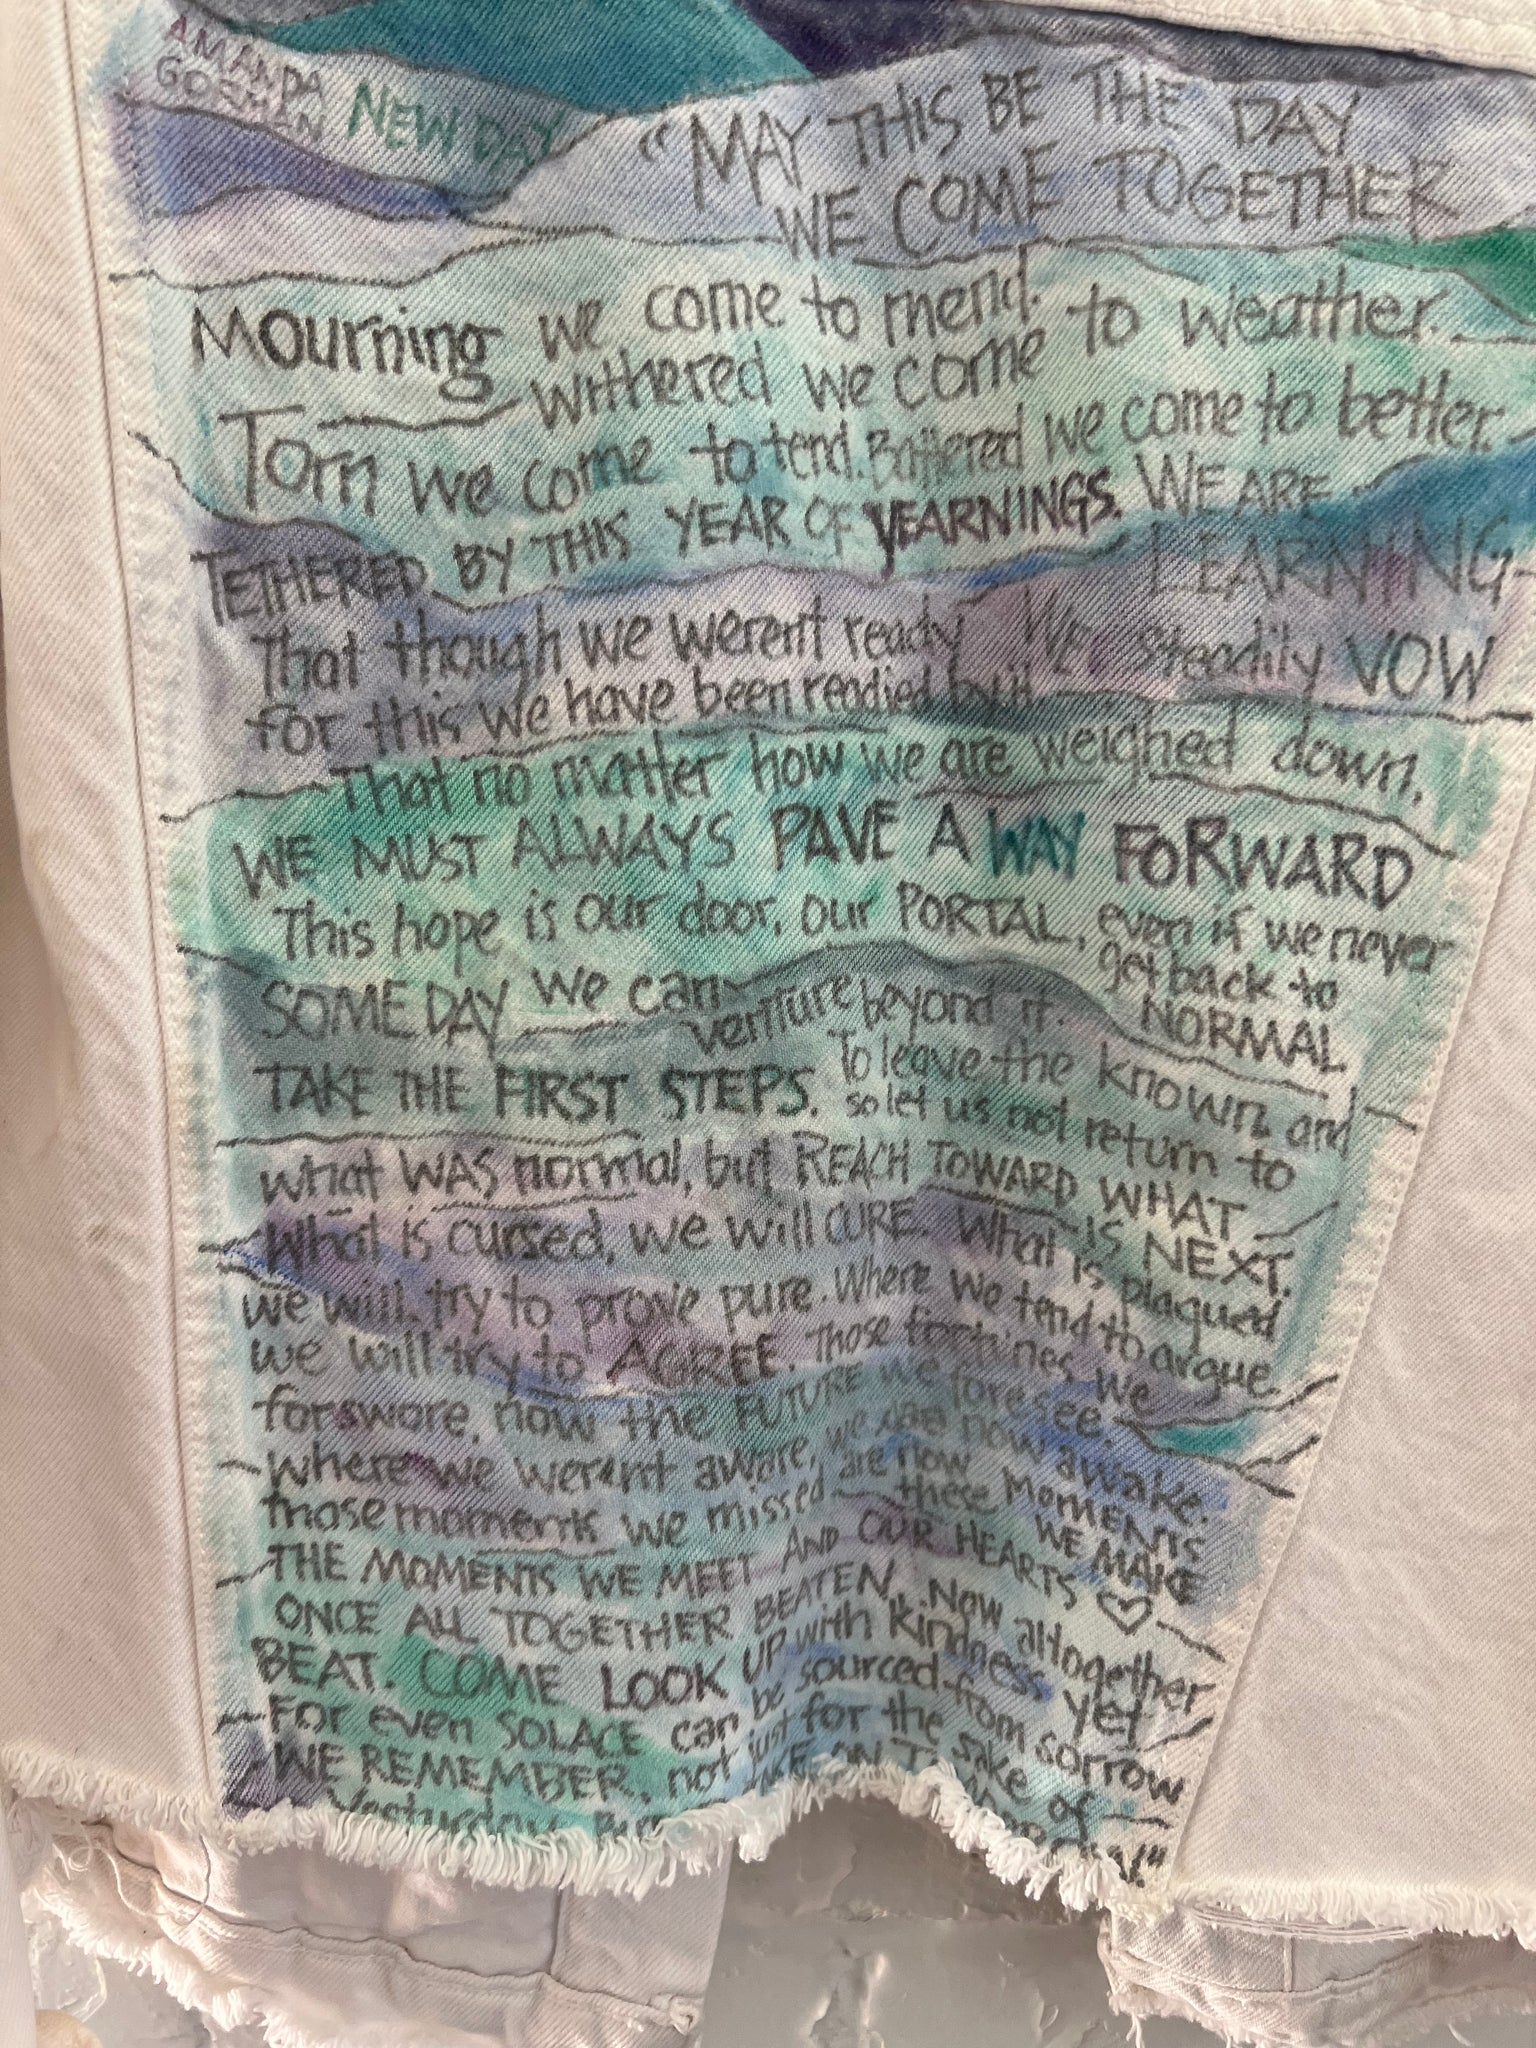 AMANDA
GORMAN
NEW DAY
"MAY THIS BE THE DAY
WE COME TOGETHER
Mourning we come to mend.
Withered we come to weather.
Torn we come to tend. Battered we come to better.
TETHERED BY THIS YEAR OF YEARNINGS. WE ARE
LEARNING
That though we werent ready
for this we have been readied
We steadily VOW
That no matter how we are weighed down,
WE MUST ALWAYS PAVE A WAY FORWARD
This hope is our door, our PORTAL, even if we never
get back to
NORMAL
SOMEDAY we can venture beyond it. To leave the known and
TAKE THE FIRST STEPS. so let us not return to
what WAS normal, but REACH TOWARD WHAT
IS NEXT.
What is cursed, we will CURE. What is plaqued
we will try to prove pure. Where we tend to argue
we will try to AGREE. Those fortunes we
forswore, now the FUTURE we foresee.
where we werent aware, we are now awake.
those moments we missed are now these MOMENTS
WE MAKE
THE MOMENTS WE MEET AND OUR HEARTS
ONCE ALL TOGETHER BEATEN. Now altogether
BEAT. COME LOOK UP with kindness yet
For even SOLACE can be sourced from sorrow
WE REMEMBER, not just for the sake of
Yesturday